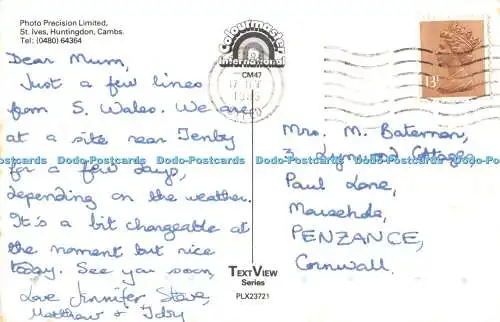 Photo Precision Limited,
St. Ives, Huntingdon, Cambs.
Tel: (0480) 64364
Colourmaster
International
CM47
Dear Mum,
Just a few lines
from S. Wales. We are
at a site near Tenby
for a few days,
depending on the weather.
It's a bit changeable at
the moment but nice
today. See you soon,
Love Jennifer Steve,
Matthew & Toby
13
Mrs. M. Bateman,
3, Cottages,
Paul Lane,
Mousehole,
PENZANCE,
Cornwall.
TEXTVIEW
Series
PLX23721
Dodo-Postcards Dodo-Postcards Dodo-Postcards Dodo-Postcards Dodo-Postcards